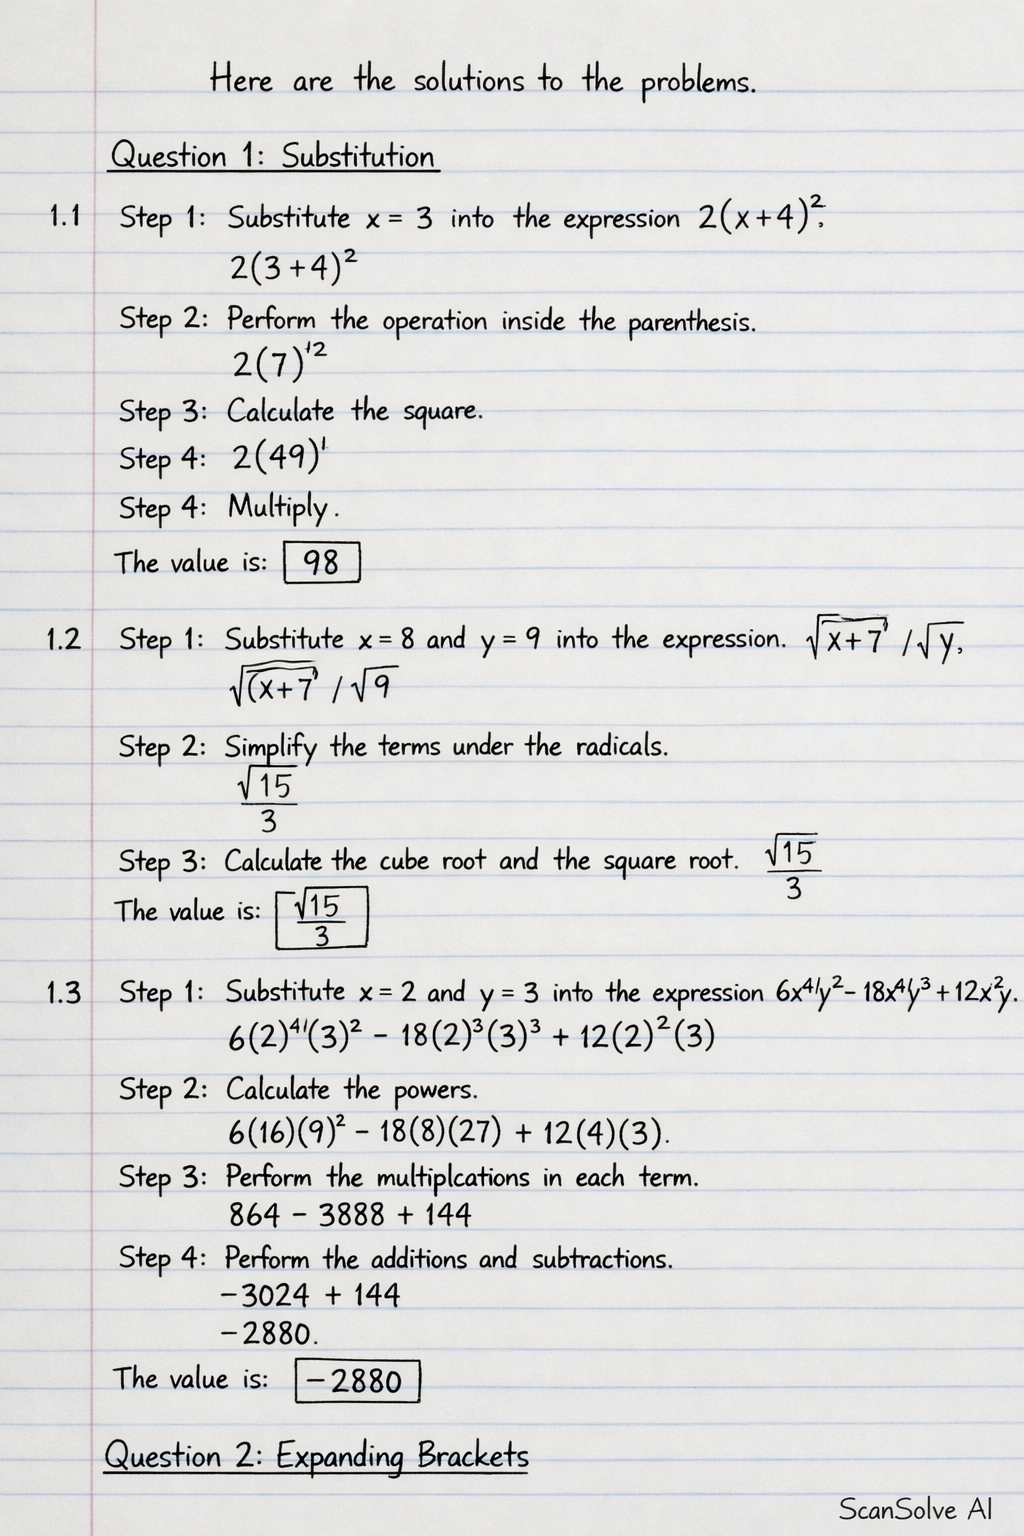 Here are the solutions to the problems.
Question 1: Substitution
1.1 Step 1: Substitute x = 3 into the expression 2(x+4)².
2(3+4)²
Step 2: Perform the operation inside the parenthesis.
2(7)'²
Step 3: Calculate the square.
Step 4: 2(49)'
Step 4: Multiply.
The value is: 98
1.2 Step 1: Substitute x = 8 and y = 9 into the expression. √x+7 / √y,
√(x+7 / √9
Step 2: Simplify the terms under the radicals.
√15
3
Step 3: Calculate the cube root and the square root. √15/3
The value is: √15/3
1.3 Step 1: Substitute x = 2 and y = 3 into the expression 6x⁴'y² – 18x⁴'y³ + 12x²y.
6(2)⁴'(3)² – 18(2)³(3)³ + 12(2)²(3)
Step 2: Calculate the powers.
6(16)(9)² – 18(8)(27) + 12(4)(3).
Step 3: Perform the multiplcations in each term.
864 – 3888 + 144
Step 4: Perform the additions and subtractions.
–3024 + 144
–2880.
The value is: –2880
Question 2: Expanding Brackets
ScanSolve AI